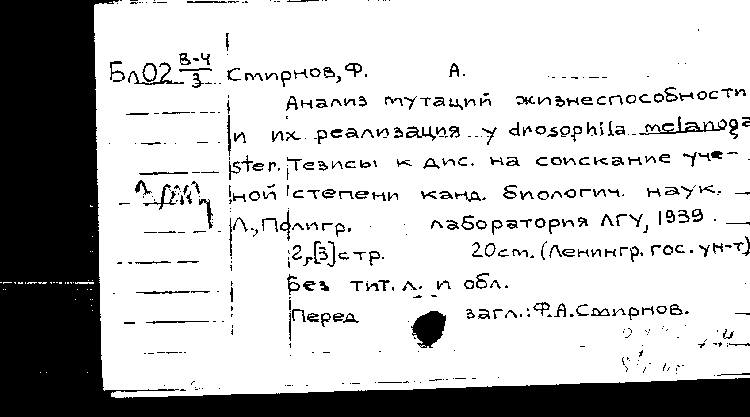 Бл02 В-4/3 Смирнов, Ф. А.
Анализ мутаций жизнеспособности
и их реализация у drosophila melanoga
ster. Тезисы к дис. на соискание уче-
ной степени канд. биологич. наук.
Л., Полигр. лаборатория ЛГУ, 1939.
2, [3] стр. 20 cm. (Ленингр. гос. ун-т)
без тит. л. и обл.
Перед загл.: Ф.А. Смирнов.